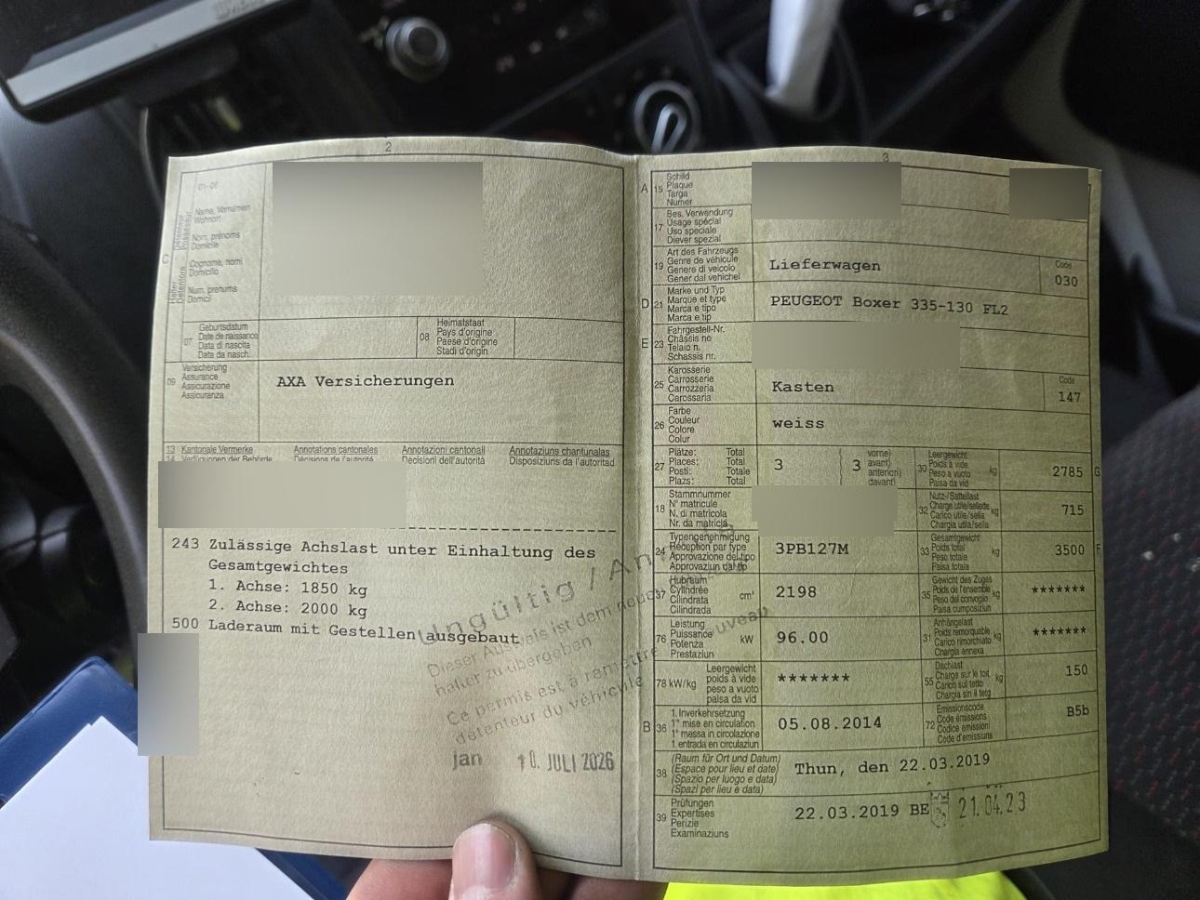 2
01-06
Name, Vornamen
Wohnort
Nom, prénoms
Domicile
C
Cognome, nomi
Domicilio
Num, prenums
Domicil
07
Geburtsdatum
Date de naissance
Data di nascita
Data da nasch.
08
Heimatstaat
Pays d'origine
Paese d'origine
Stadi d'origin
09
Versicherung
Assurance
Assicurazione
Assicuranza
AXA Versicherungen
13 Kantonale Vermerke Annotations cantonales Annotazioni cantonali Annotaziuns chantunalas
14 Verfügungen der Behörde Décisions de l'autorité Decisioni dell'autorità Disposiziuns da l'autoritad
243 Zulässige Achslast unter Einhaltung des
Gesamtgewichtes
1. Achse: 1850 kg
2. Achse: 2000 kg
500 Laderaum mit Gestellen ausgebaut
Ungültig / An
Dieser Ausweis ist dem neuen
halter zu übergeben
Ce permis est à remettre nouveau
détenteur du véhicule
jan 10. JULI 2026
3
A 15
Schild
Plaque
Targa
Numer
17
Bes. Verwendung
Usage spécial
Uso speciale
Diever spezial
19
Art des Fahrzeugs
Genre de véhicule
Genere di veicolo
Gener dal vehichel
Lieferwagen
Code
030
D 21
Marke und Typ
Marque et type
Marca e tipo
Marca e tip
PEUGEOT Boxer 335-130 FL2
E 23
Fahrgestell-Nr.
Châssis no
Telaio n.
Schassis nr.
25
Karosserie
Carrosserie
Carrozzeria
Carossaria
Kasten
Code
147
26
Farbe
Couleur
Colore
Colur
weiss
27
Plätze: Total
Places: Total
Posti: Totale
Plazs: Total
3
3
vorne)
avant)
anteriori)
davant)
30
Leergewicht
Poids à vide
Peso a vuoto
Paisa da vid
kg
2785 G
18
Stammnummer
N° matricule
N. di matricola
Nr. da matricla
32
Nutz-/Sattellast
Charge utile/sellette
Carico utile/sella
Chargia utila/sella
kg
715
24
Typengenehmigung
Réception par type
Approvazione del tipo
Approvaziun dal tip
3PB127M
33
Gesamtgewicht
Poids total
Peso totale
Paisa totala
kg
3500 F
37
Hubraum
Cylindrée
Cilindrata
Cilindrada
cm³
2198
35
Gewicht des Zuges
Poids de l'ensemble
Peso del convoglio
Paisa cumposiziun
kg
*******
76
Leistung
Puissance
Potenza
Prestaziun
kW
96.00
31
Anhängelast
Poids remorquable
Carico rimorchiato
Chargia annexa
kg
*******
78 kW/kg
Leergewicht
poids à vide
peso a vuoto
paisa da vid
*******
55
Dachlast
Charge sur le toit
Carico sul tetto
Chargia sin il tetg
kg
150
B 36
1. Inverkehrsetzung
1re mise en circulation
1a messa in circolazione
1. entrada en circulaziun
05.08.2014
72
Emissionscode
Code émissions
Codice emissioni
Code d'emissiuns
B5b
38
(Raum für Ort und Datum)
(Espace pour lieu et date)
(Spazio per luogo e data)
(Spazi per lieu e data)
Thun, den 22.03.2019
39
Prüfungen
Expertises
Perizie
Examinaziuns
22.03.2019 BE 21.04.23